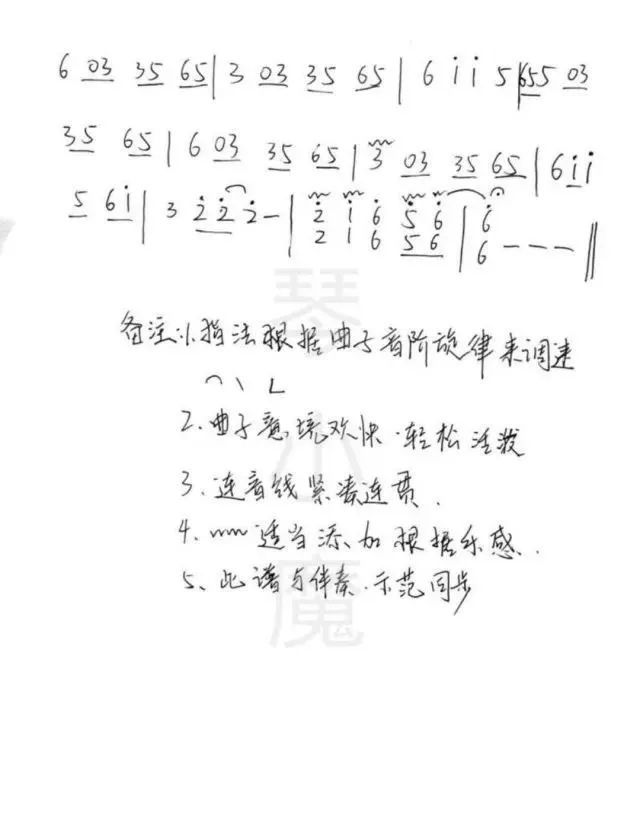 6 03 35 65 | 3 03 35 65 | 6 i i 5 | 655 03
35 65 | 6 03 35 65 | 3 03 35 65 | 6 i i
5 6 i | 3 2̇ 2̇ 2̇ — | 2̇ i 6̇ 5̇ 6̇ | 6̇
2 1 6 5 6 | 6 — — — ‖
备注1、指法根据曲子音阶旋律来调速
⌒ \ L
2.曲子意境欢快.轻松活泼
3.连音线紧凑连贯.
4. 适当添加根据乐感.
5、此谱与伴奏.示范同步
琴
小
魔